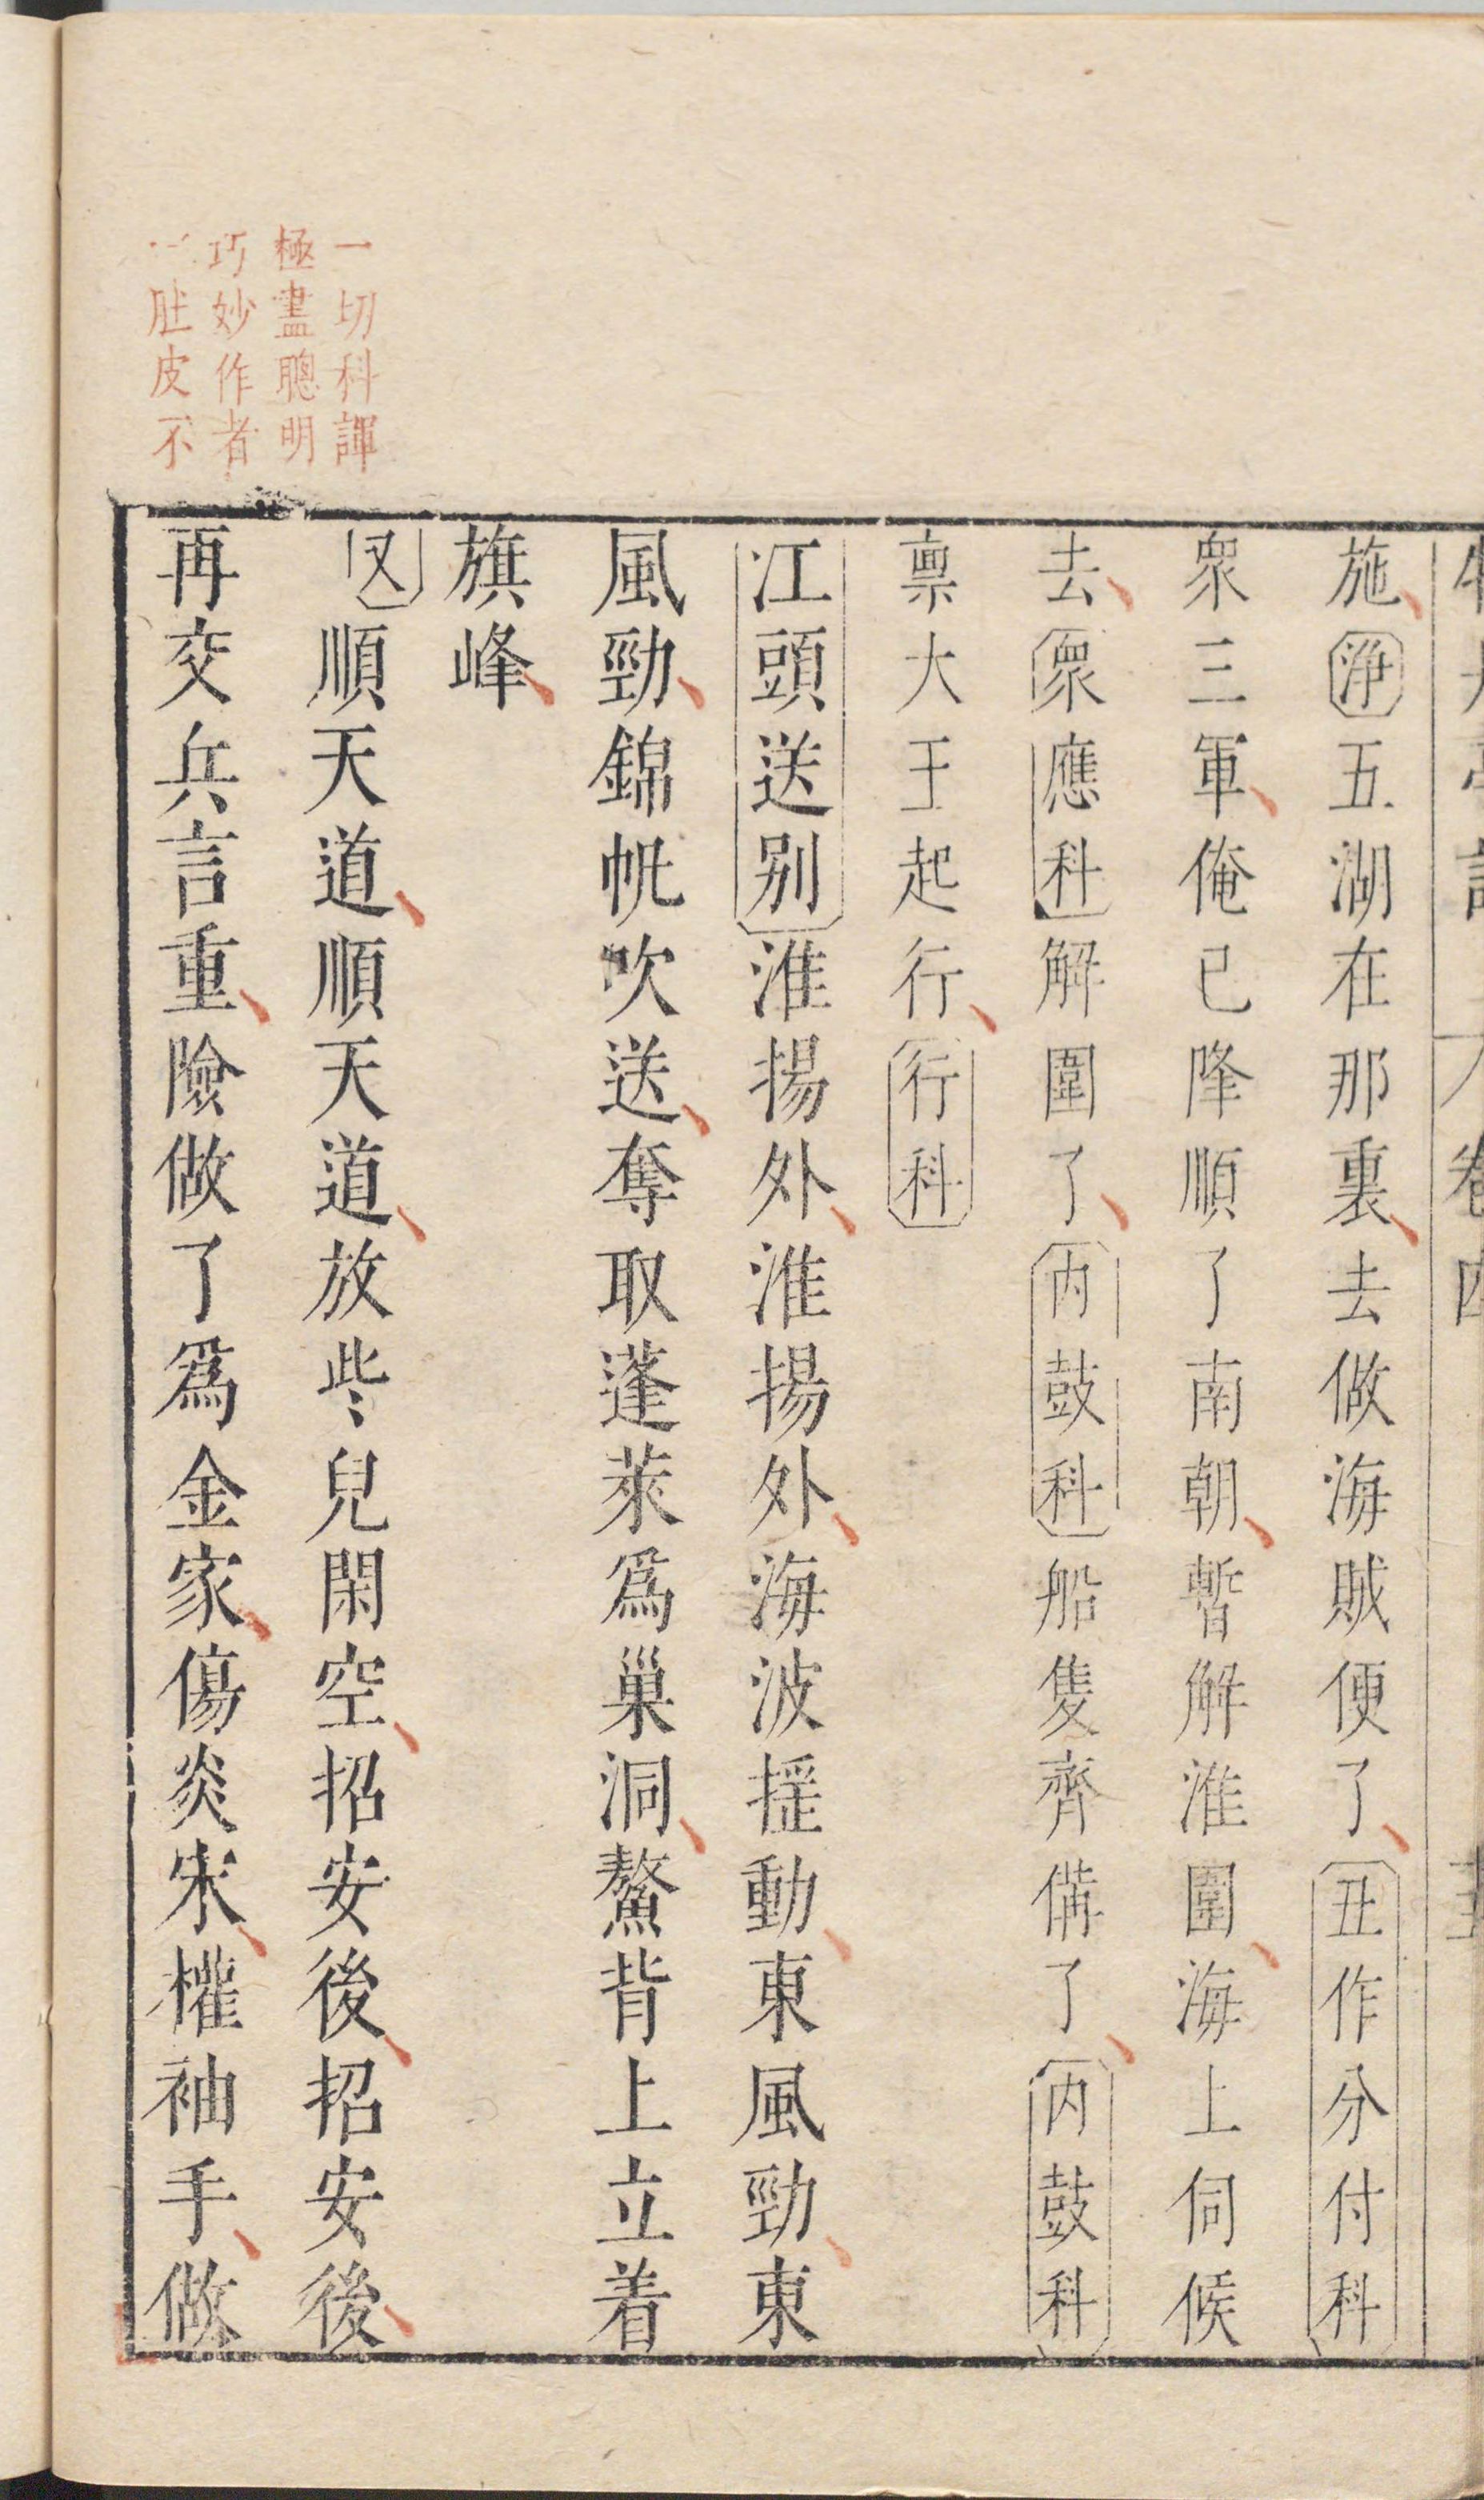 牡丹亭記 卷四
施淨五湖在那裏去做海賊便了丑作分付科
衆三軍俺已降順了南朝暫解淮圍海上伺候
去衆應科解圍了内鼓科船隻齊備了内鼓科
禀大王起行行科
江頭送别淮揚外淮揚外海波揺動東風勁東
風勁錦帆吹送奪取蓬萊爲巢洞鰲背上立着
旗峰
又順天道順天道放些兒閑空招安後招安後
再交兵言重險做了爲金家傷炎宋權袖手做
一切科諢
極盡聰明
巧妙作者
一肚皮不